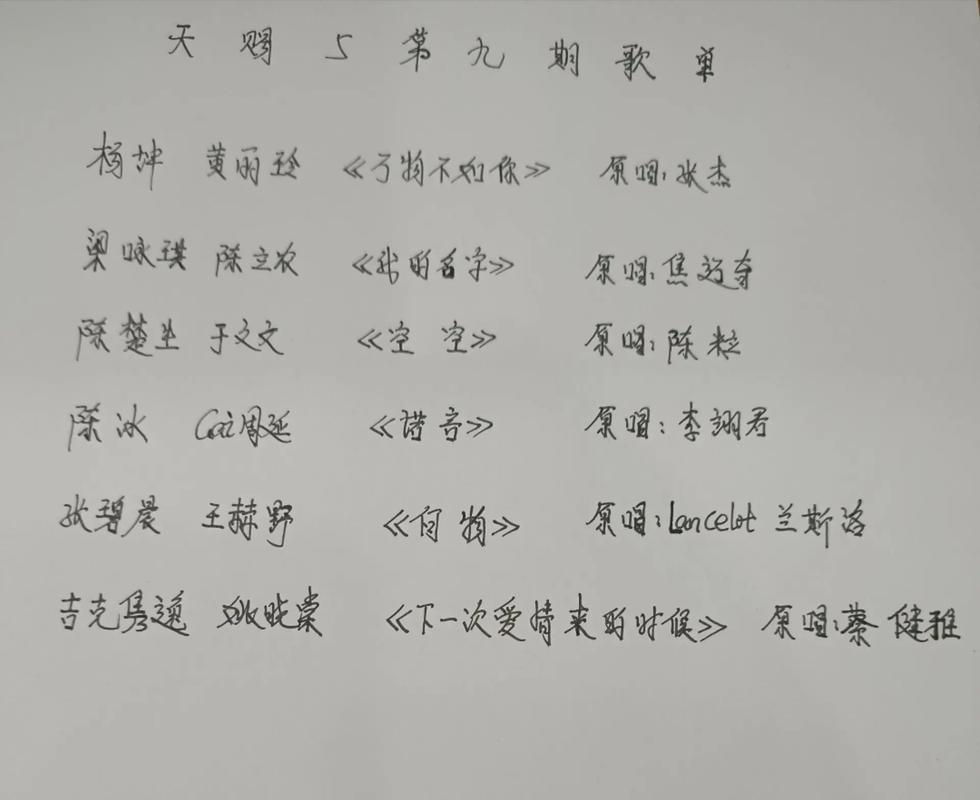 天赐5第九期歌单
杨坤 黄丽玲 《万物不如你》 原唱:张杰
梁咏琪 陈立农 《我的名字》 原唱:焦迈奇
陈楚生 于文文 《空空》 原唱:陈粒
陈冰 Gai周延 《谐音》 原唱:李翊君
张碧晨 王赫野 《何物》 原唱:Lancelot 兰斯洛
吉克隽逸 姚晓棠 《下一次爱情来的时候》 原唱:蔡健雅